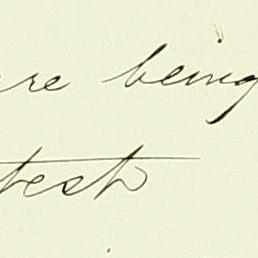 are being
test